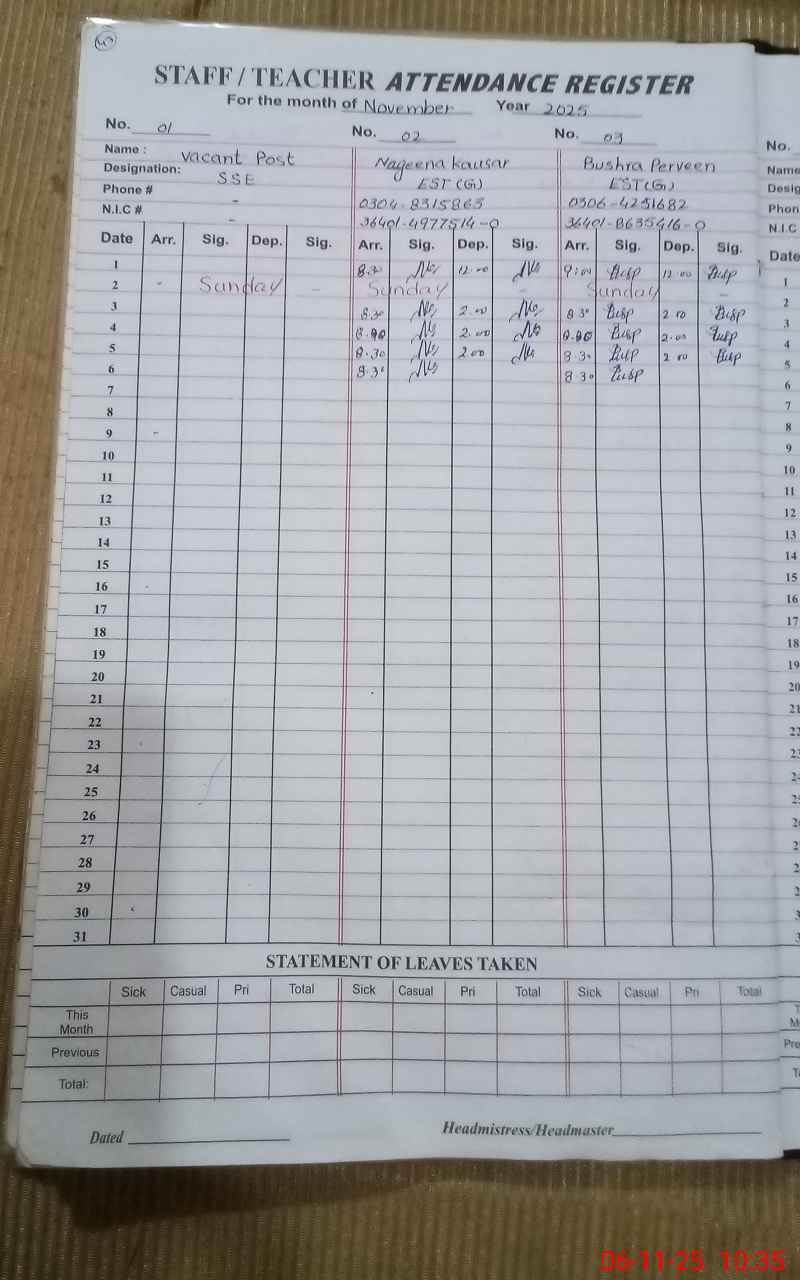 STAFF / TEACHER ATTENDANCE REGISTER
For the month of November Year 2025
No. 01 No. 02 No. 03 No.
Name : Vacant Post Nageena Kausar Bushra Perveen Name
Designation: SSE EST (G) EST (G) Desig
Phone # - 0304-8315865 0306-4251682 Phon
N.I.C # - 36401-4977514-0 36401-8635416-0 N.I.C
Date Arr. Sig. Dep. Sig. Arr. Sig. Dep. Sig. Arr. Sig. Dep. Sig. Date
1 8.30 12.00 9:00 12.00 1
2 - Sunday - Sunday - Sunday - 2
3 8.30 2.00 8 30 2 00 3
4 2.00 2.00 4
5 8.30 2.00 8 30 2 00 5
6 8.30 8 30 6
7 7
8 8
9 9
10 10
11 11
12 12
13 13
14 14
15 15
16 16
17 17
18 18
19 19
20 20
21 21
22
23
24
25
26
27
28
29
30
31
STATEMENT OF LEAVES TAKEN
Sick Casual Pri Total Sick Casual Pri Total Sick Casual Pri Total
This
Month
Previous Pre
Total:
Dated Headmistress/Headmaster
06-11-25 10:35